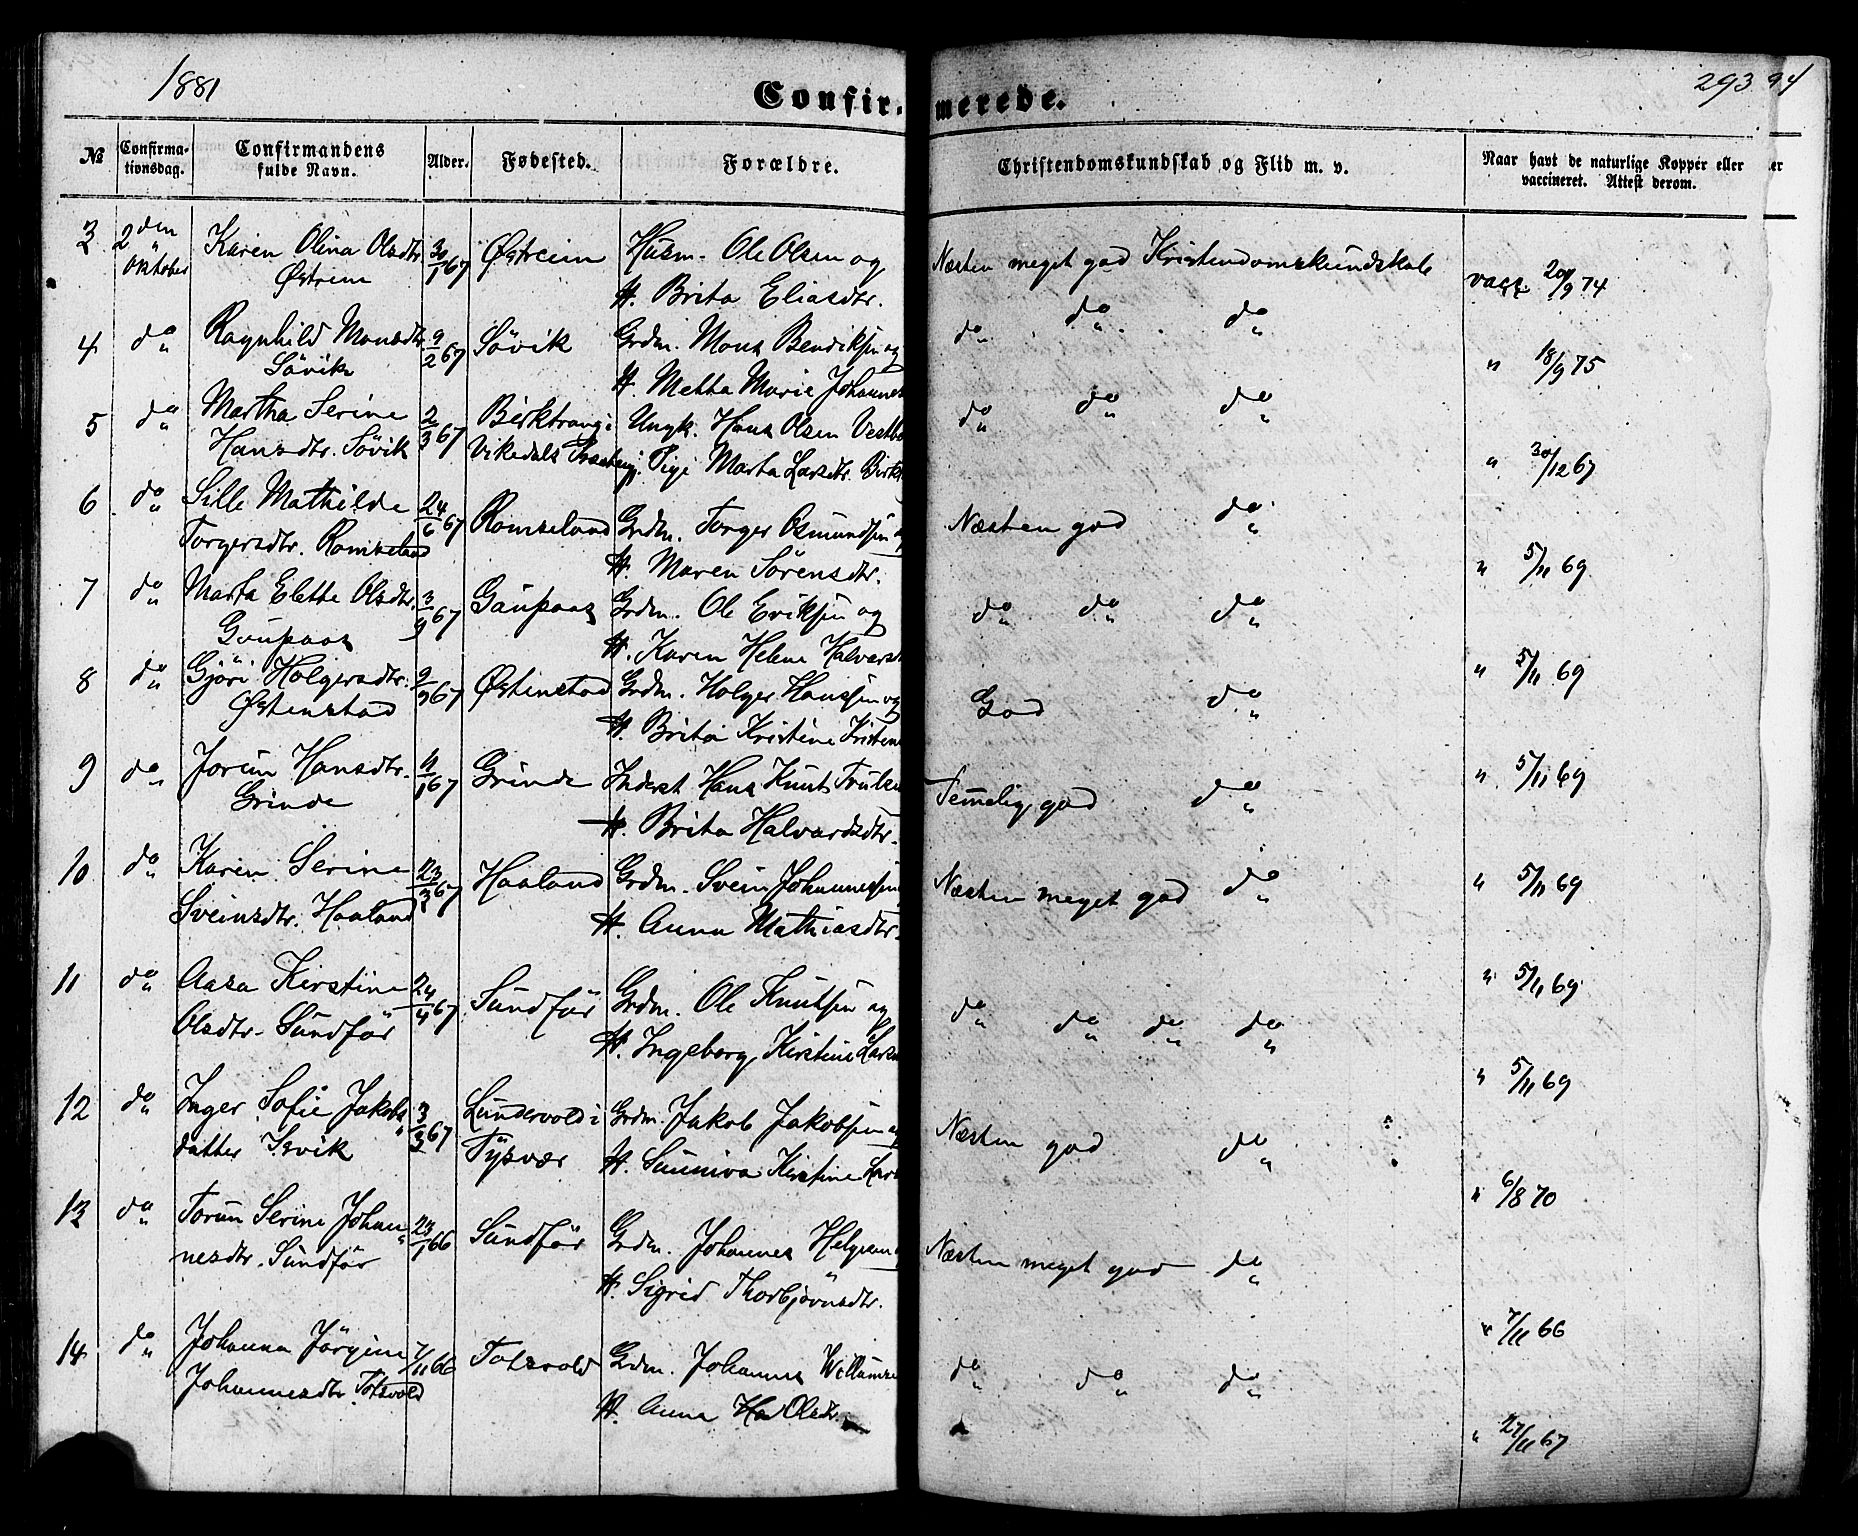 1881
Confir- merede.
293 94
No
Confirmationsdag.
Confirmandens fulde Navn.
Alder.
Fødested.
Forældre.
Christendomskundskab og Flid m. v.
Naar havt de naturlige Kopper eller vaccineret. Attest derom.
3 2den Oktober Karen Olina Olsdtr. 30/1 67 Østreim Husm. Ole Olsen og Næsten meget god Kristendomskundskab vacc. 20/9 74
Østrem H. Brita Eliasdtr.
4 do Ragnhild Monsdtr. 9/2 67 Søvik Grdm. Mons Bendiksen og do do do " 18/9 75
Søvik H. Metta Marie Johannes
5 do Martha Serine 2/3 67 Birktrang i Ungk. Hans Olsen do do do " 30/12 67
Hansdtr. Søvik Vikedals Pige Marta Larsdtr.
6 do Sille Mathilde 24/6 67 Ramseland Grdm. Torger Osmundsen og Næsten god do " 5/11 69
Torgersdtr. Ramseland H. Maren Sørensdtr.
7 do Marta Elette Olsdtr. 3/9 67 Gaupaas Grdm. Ole Eriksen og do do do " 5/11 69
Gaupaas H. Karen Helene Halvorsd
8 do Gjøri Holgersdtr. 9/9 67 Østenstad Grdm. Holger Hansen og God do " 5/11 69
Østenstad H. Brita Kristine Kristens
9 do Jorun Hansdtr. 11/1 67 Grinde Inderst Hans Knut Temelig god do " 5/11 69
Grinde H. Brita Halvardsdtr.
10 do Karen Serine 23/3 67 Haaland Grdm. Svein Johannessen Næsten meget god do " 5/11 69
Sveinsdtr. Haaland H. Anna Mathiasdtr.
11 do Aasa Kirstine 24/4 67 Sundfør Grdm. Ole Knutsen og do do do do " 5/11 69
Olsdtr. Sundfør H. Ingeborg Kirstine Larsd
12 do Inger Sofie Jakobs 3/3 67 Lundervold i Grdm. Jakob Jakobsen og Næsten god do " 6/8 70
datter Isvik Tysvær H. Sunniva Kirstine Lars
13 do Torun Serine Johan 23/1 66 Sundfør Grdm. Johannes Helgesen Næsten meget god do " 7/11 66
nesdtr. Sundfør H. Sigrid Thorbjørnsdtr.
14 do Johanna Jørgine 7/11 66 Totsvold Grdm. Johannes Willumsen do do do " 27/11 67
Johannesdtr Totsvold H. Anna Olsdtr.